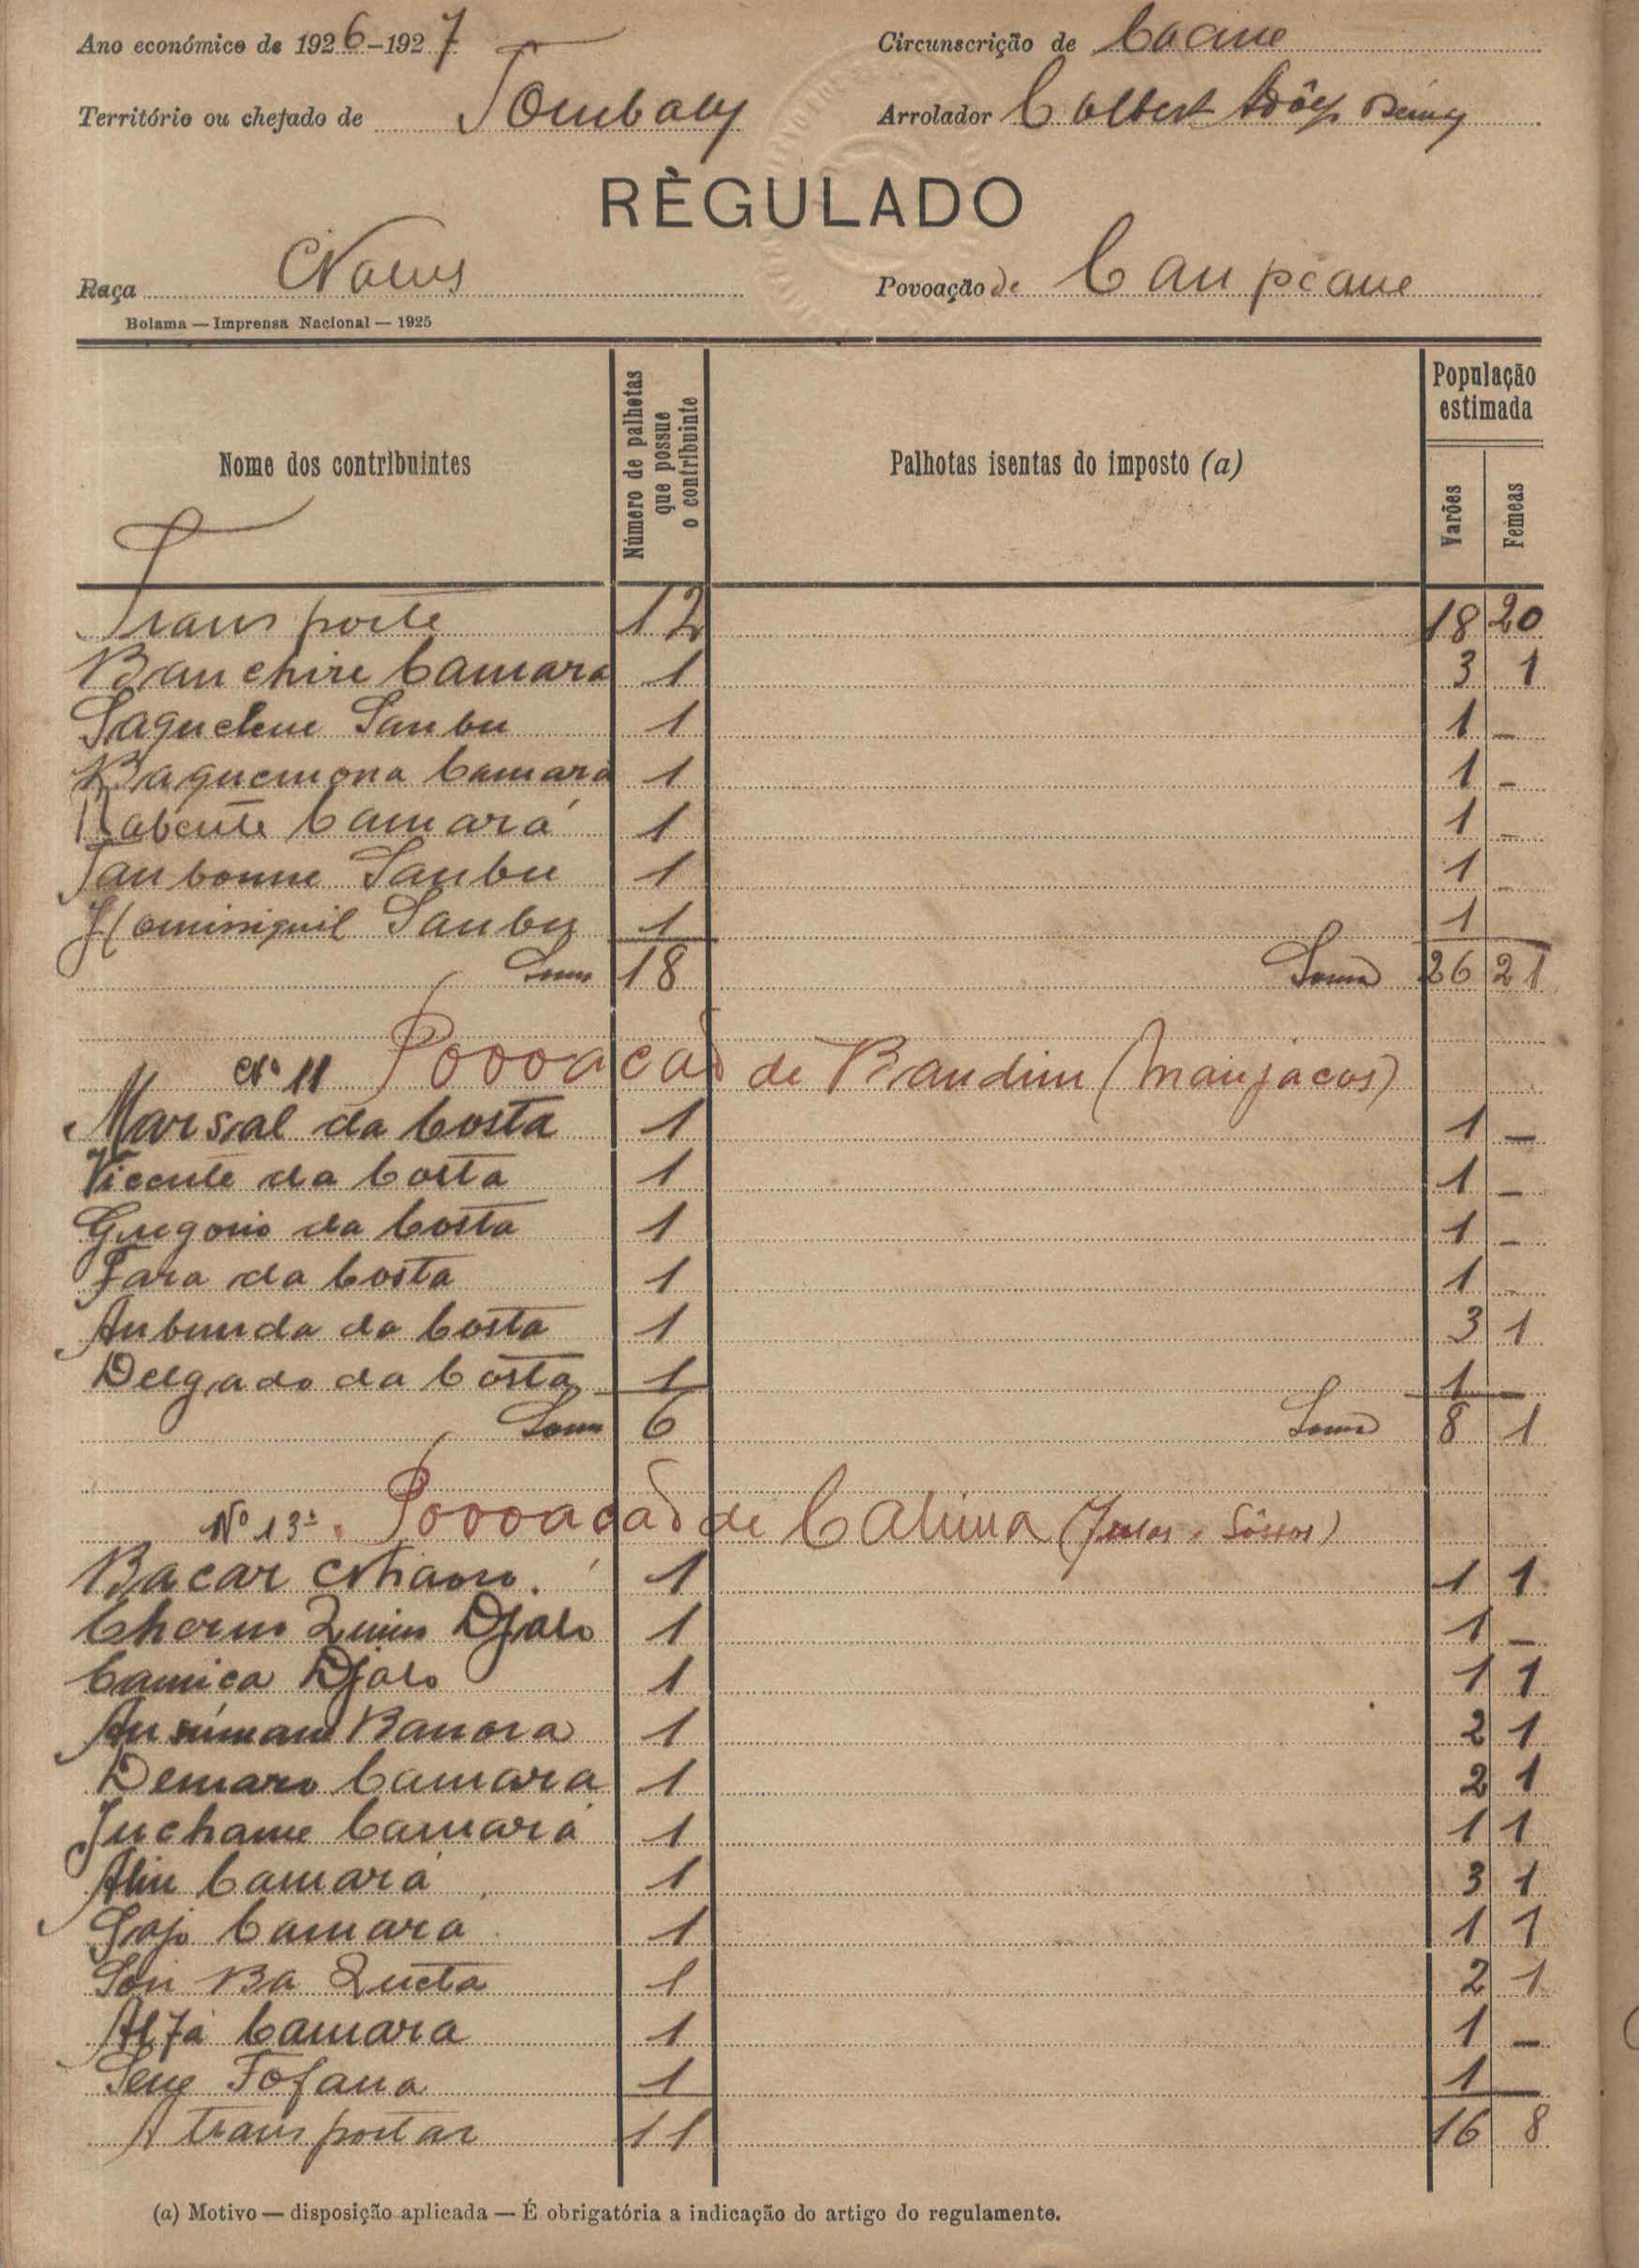 Ano económico de 1926-1927
Circunscrição de Cacine
Território ou chefado de Tombaly
Arrolador Colbert
RÈGULADO
Raça Nalus
Povoação de Campeane
Bolama — Imprensa Nacional — 1925
Nome dos contribuintes
Número de palhotas que possue o contribuinte
Palhotas isentas do imposto (a)
População estimada
Varões
Femeas
Transporte 12 18 20
Banchire Camara 1 3 1
Saguelene Sanbu 1 1 -
Baquemona Camara 1 1 -
Camará 1 1 -
Tanbonne Sanbu 1 1 -
Sanbu 1 1
Soma 18 Soma 26 21
Nº 11 Povoacão de Bandim (Manjacos)
Marsal da Costa 1 1 -
Vicente da Costa 1 1 -
Gregorio da Costa 1 1 -
Fara da Costa 1 1 -
Anbunda da Costa 1 3 1
Delgado da Costa 1 1 -
Soma 6 Soma 8 1
Nº 13 Povoacão de Calima (Fulas e Sôssos)
Bacar 1 1 1
Cherno Djalo 1 1 -
Camica Djalo 1 1 1
Ansumane Banora 1 2 1
Demaro Camara 1 2 1
Juchame Camará 1 1 1
Aliu Camará 1 3 1
Camara 1 1 1
Sori Ba Queta 1 2 1
Alfa Camara 1 1 -
Sene Fofana 1 1 -
A transportar 11 16 8
(a) Motivo — disposição aplicada — É obrigatória a indicação do artigo do regulamento.